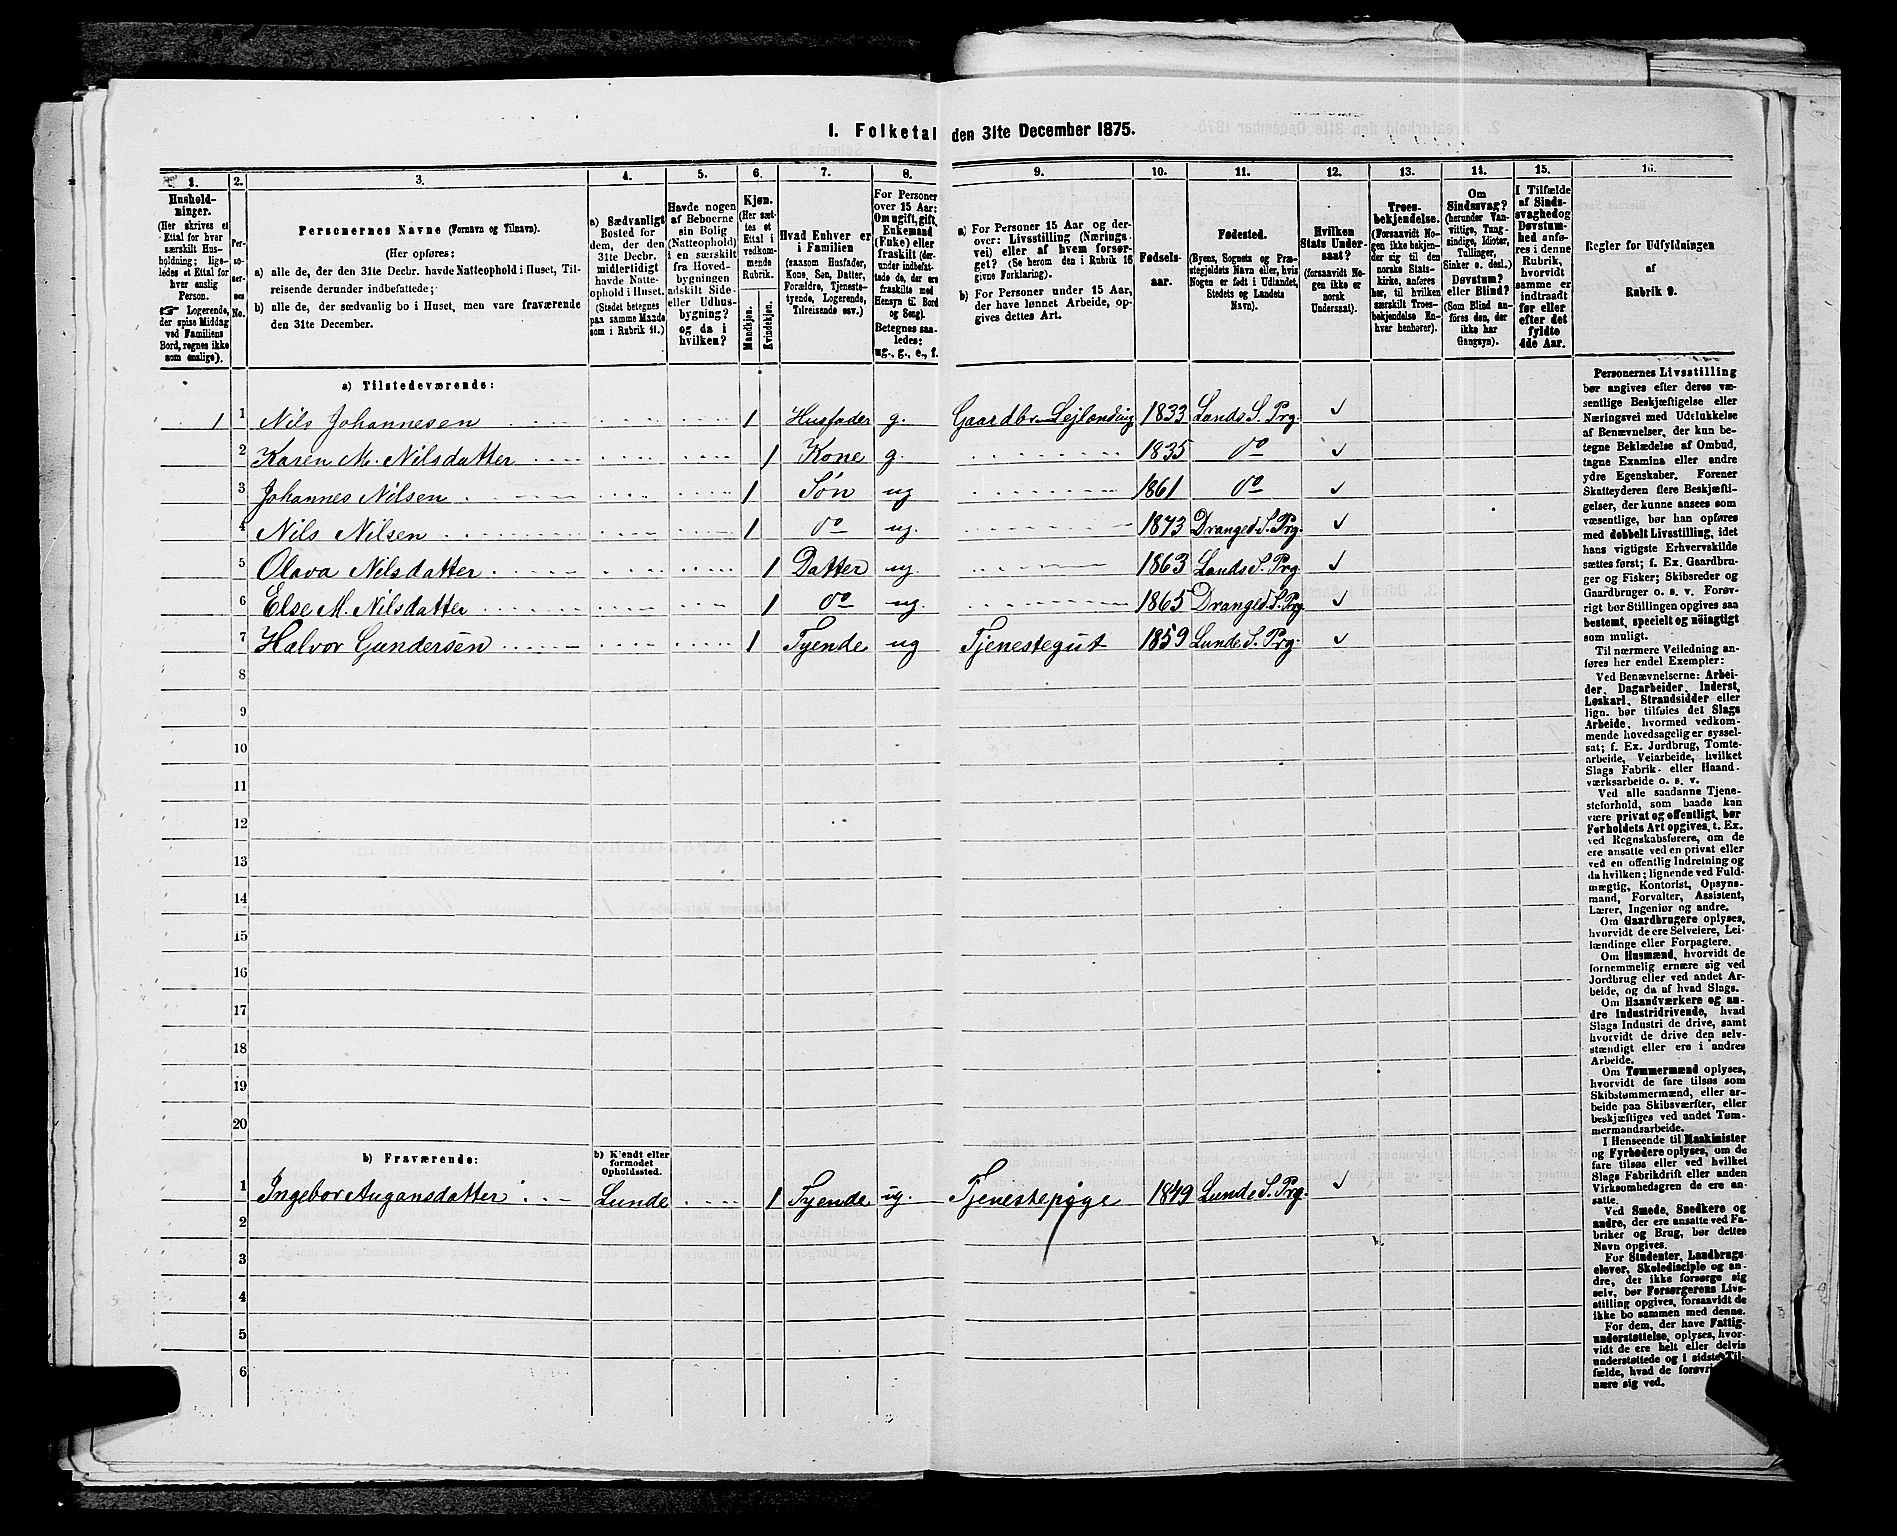 1. Folketal den 31te December 1875.
1. 2. 3. 4. 5. 6. 7. 8. 9. 10. 11. 12. 13. 14. 15. 16.
Husholdninger.
(Her skrives et
Ettal for hver
særskilt Husholdning; ligeledes et Ettal for
hver enslig
Person.
☞ Logerende,
der spise Middag
ved Familiens
Bord, regnes ikke
som enslige).
Personernes No.
Personernes Navne (Fornavn og Tilnavn).
(Her opføres:
a) alle de, der den 31te Decbr. havde Natteophold i Huset, Tilreisende derunder indbefattede;
b) alle de, der sædvanlig bo i Huset, men vare fraværende
den 31te December.
a) Sædvanligt
Bosted for
dem, der den
31te Decbr.
midlertidigt
havde Natteophold i Huset.
(Stedet betegnes
paa samme Maade
som i Rubrik 11.)
Havde nogen
af Beboerne
sin Bolig
(Natteophold)
i en særskilt
fra Hovedbygningen
adskilt Side-
eller Udhusbygning?
og da i
hvilken?
Kjøn.
(Her sættes et
Ettal i
vedkommende
Rubrik.
Mandkjøn.
Kvindekjøn.
Hvad Enhver er
i Familien
(saasom Husfader,
Kone, Søn, Datter,
Forældre, Tjenestetyende, Logerende,
Tilreisende osv.)
For Personer
over 15 Aar:
Om ugift, gift,
Enkemand
(Enke) eller
fraskilt (derunder indbefattede de, der ere
fraskilte med
Hensyn til Bord
og Seng).
Betegnes saaledes:
ug., g., e., f.
a) For Personer 15 Aar og derover: Livsstilling (Næringsvei) eller af hvem forsørget? (Se herom den i Rubrik 16
givne Forklaring).
b) For Personer under 15 Aar,
der have lønnet Arbeide, opgives dettes Art.
Fødselsaar.
Fødested.
(Byens, Sognets og Præstegjeldets Navn eller, hvis
Nogen er født i Udlandet,
Stedets og Landets
Navn).
Hvilken
Stats Undersaat?
(forsaavidt Nogen ikke er
norsk
Undersaat).
Troesbekjendelse.
(Forsaavidt Nogen ikke bekjender sig til den
norske Statskirke, anføres
her, til hvilken
særskilt Troesbekjendelse Enhver henhører).
Om
Sindssvag?
(herunder Vanvittige, Tungsindige, Idioter,
Tullinger,
Sinker o. desl.)
Døvstum?
eller Blind?
(Som Blind anføres den, der
ikke har
Gangsyn).
I Tilfælde
af Sindssvaghed og
Døvstumhed anføres i denne
Rubrik,
hvorvidt
samme er
indtraadt
før eller
efter det
fyldte
4de Aar.
Regler for Udfyldningen
af
Rubrik 9.
a) Tilstedeværende:
1 1 Nils Johannesen 1 Husfader g. Gaardbr. Lejlænding 1833 Lands S. Prg. ✓
2 Karen M. Nilsdatter 1 Kone g. 1835 do ✓
3 Johannes Nilsen 1 Søn ug 1861 do ✓
4 Nils Nilsen 1 do ug. 1873 Dranged. S. Prg. ✓
5 Olava Nilsdatter 1 Datter ug 1863 Lands S. Prg. ✓
6 Else M. Nilsdatter 1 do ug. 1865 Dranged. S. Prg. ✓
7 Halvor Gundersen 1 Tyende ug Tjenestegut 1859 Lunde S. Prg. ✓
8
9
10
11
12
13
14
15
16
17
18
19
20
b) Fraværende:
b) Kjendt eller
formodet
Opholdssted.
1 Ingebor Augansdatter Lunde 1 Tyende ug. Tjenestepige 1849 Lunde S. Prg. ✓
2
3
4
5
6
Personernes Livsstilling
bør angives efter deres væsentlige Beskjæftigelse eller
Næringsvei med Udelukkelse
af Benævnelser, der kun betegne Beklædelse af Ombud,
tagne Examina eller andre
ydre Egenskaber. Forener
Skatteyderen flere Beskjæftigelser, der kunne ansees som
væsentlige, bør han opføres
med dobbelt Livsstilling, idet
hans vigtigste Erhvervskilde
sættes først; f. Ex. Gaardbruger og Fisker; Skibsreder og
Gaardbruger o. s. v. Forøvrigt bør Stillingen opgives saa
bestemt, specielt og nøiagtigt
som muligt.
Til nærmere Veiledning anføres her endel Exempler:
Ved Benævnelserne: Arbeider, Dagarbeider, Inderst,
Løskarl, Strandsidder eller
lign. bør tilføies det Slags
Arbeide, hvormed vedkommende hovedsagelig er sysselsat; f. Ex. Jordbrug, Tomtearbeide, Veiarbeide, hvilket
Slags Fabrik- eller Haandværksarbeide o. s. v.
Ved alle saadanne Tjenesteforhold, som baade kan
være privat og offentligt, bør
Forholdets Art opgives, t. Ex.
ved Regnskabsførere, om de
ere ansatte ved en privat eller
ved en offentlig Indretning og
da hvilken; lignende ved Fuldmægtig, Kontorist, Opsynsmand, Forvalter, Assistent,
Lærer, Ingeniør og andre.
Om Gaardbrugere oplyses,
hvorvidt de ere Selveiere, Leilændinge eller Forpagtere.
Om Husmænd, hvorvidt de
fornemmelig ernære sig ved
Jordbrug eller ved andet Arbeide, og da af hvad Slags.
Om Haandværkere og andre Industridrivende, hvad
Slags Industri de drive, samt
hvorvidt de drive den selvstændigt eller ere i andres
Arbeide.
Om Tømmermænd oplyses,
hvorvidt de fare tilsøs som
Skibstømmermænd, eller arbeide paa Skibsværfter, eller
beskjæftiges ved andet Tømmermandsarbeide.
I Henseende til Maskinister
og Fyrbødere oplyses, om de
fare tilsøs eller ved hvilket
Slags Fabrikdrift eller anden
Virksomhedsgren de ere ansatte.
Ved Smede, Snedkere og
andre, der ere ansatte ved Fabriker og Brug, bør dettes
Navn opgives.
For Studenter, Landbrugselever, Skoledisciple og andre, der ikke forsørge sig
selv, bør Forsørgerens Livsstilling opgives, forsaavidt de
ikke bo sammen med denne.
For dem, der have Fattigunderstøttelse, oplyses, hvorvidt de ere helt eller delvis
understøttede og i sidste Tilfælde, hvad de forøvrigt
nære sig ved.